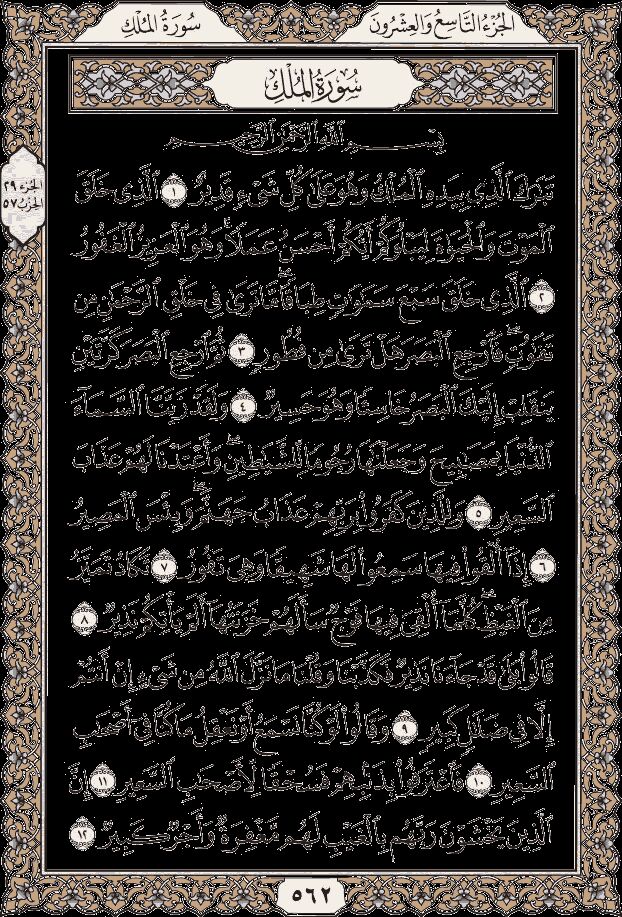 الجُزْءُ التَّاسِعُ وَالعِشْرُونَ
سُورَةُ المُلْكِ
الجزء ٢٩
الحزب ٥٧
سُورَةُ المُلْكِ
بِسْمِ ٱللَّهِ ٱلرَّحْمَٰنِ ٱلرَّحِيمِ
تَبَٰرَكَ ٱلَّذِى بِيَدِهِ ٱلْمُلْكُ وَهُوَ عَلَىٰ كُلِّ شَىْءٍ قَدِيرٌ ١ ٱلَّذِى خَلَقَ
ٱلْمَوْتَ وَٱلْحَيَوٰةَ لِيَبْلُوَكُمْ أَيُّكُمْ أَحْسَنُ عَمَلًا ۚ وَهُوَ ٱلْعَزِيزُ ٱلْغَفُورُ
٢ ٱلَّذِى خَلَقَ سَبْعَ سَمَٰوَٰتٍ طِبَاقًا ۖ مَّا تَرَىٰ فِى خَلْقِ ٱلرَّحْمَٰنِ مِن
تَفَٰوُتٍ ۖ فَٱرْجِعِ ٱلْبَصَرَ هَلْ تَرَىٰ مِن فُطُورٍ ٣ ثُمَّ ٱرْجِعِ ٱلْبَصَرَ كَرَّتَيْنِ
يَنقَلِبْ إِلَيْكَ ٱلْبَصَرُ خَاسِئًا وَهُوَ حَسِيرٌ ٤ وَلَقَدْ زَيَّنَّا ٱلسَّمَآءَ
ٱلدُّنْيَا بِمَصَٰبِيحَ وَجَعَلْنَٰهَا رُجُومًا لِّلشَّيَٰطِينِ ۖ وَأَعْتَدْنَا لَهُمْ عَذَابَ
ٱلسَّعِيرِ ٥ وَلِلَّذِينَ كَفَرُوا۟ بِرَبِّهِمْ عَذَابُ جَهَنَّمَ ۖ وَبِئْسَ ٱلْمَصِيرُ
٦ إِذَآ أُلْقُوا۟ فِيهَا سَمِعُوا۟ لَهَا شَهِيقًا وَهِىَ تَفُورُ ٧ تَكَادُ تَمَيَّزُ
مِنَ ٱلْغَيْظِ ۖ كُلَّمَآ أُلْقِىَ فِيهَا فَوْجٌ سَأَلَهُمْ خَزَنَتُهَآ أَلَمْ يَأْتِكُمْ نَذِيرٌ ٨
قَالُوا۟ بَلَىٰ قَدْ جَآءَنَا نَذِيرٌ فَكَذَّبْنَا وَقُلْنَا مَا نَزَّلَ ٱللَّهُ مِن شَىْءٍ إِنْ أَنتُمْ
إِلَّا فِى ضَلَٰلٍ كَبِيرٍ ٩ وَقَالُوا۟ لَوْ كُنَّا نَسْمَعُ أَوْ نَعْقِلُ مَا كُنَّا فِىٓ أَصْحَٰبِ
ٱلسَّعِيرِ ١٠ فَٱعْتَرَفُوا۟ بِذَنۢبِهِمْ فَسُحْقًا لِّأَصْحَٰبِ ٱلسَّعِيرِ ١١ إِنَّ
ٱلَّذِينَ يَخْشَوْنَ رَبَّهُم بِٱلْغَيْبِ لَهُم مَّغْفِرَةٌ وَأَجْرٌ كَبِيرٌ ١٢
٥٦٢